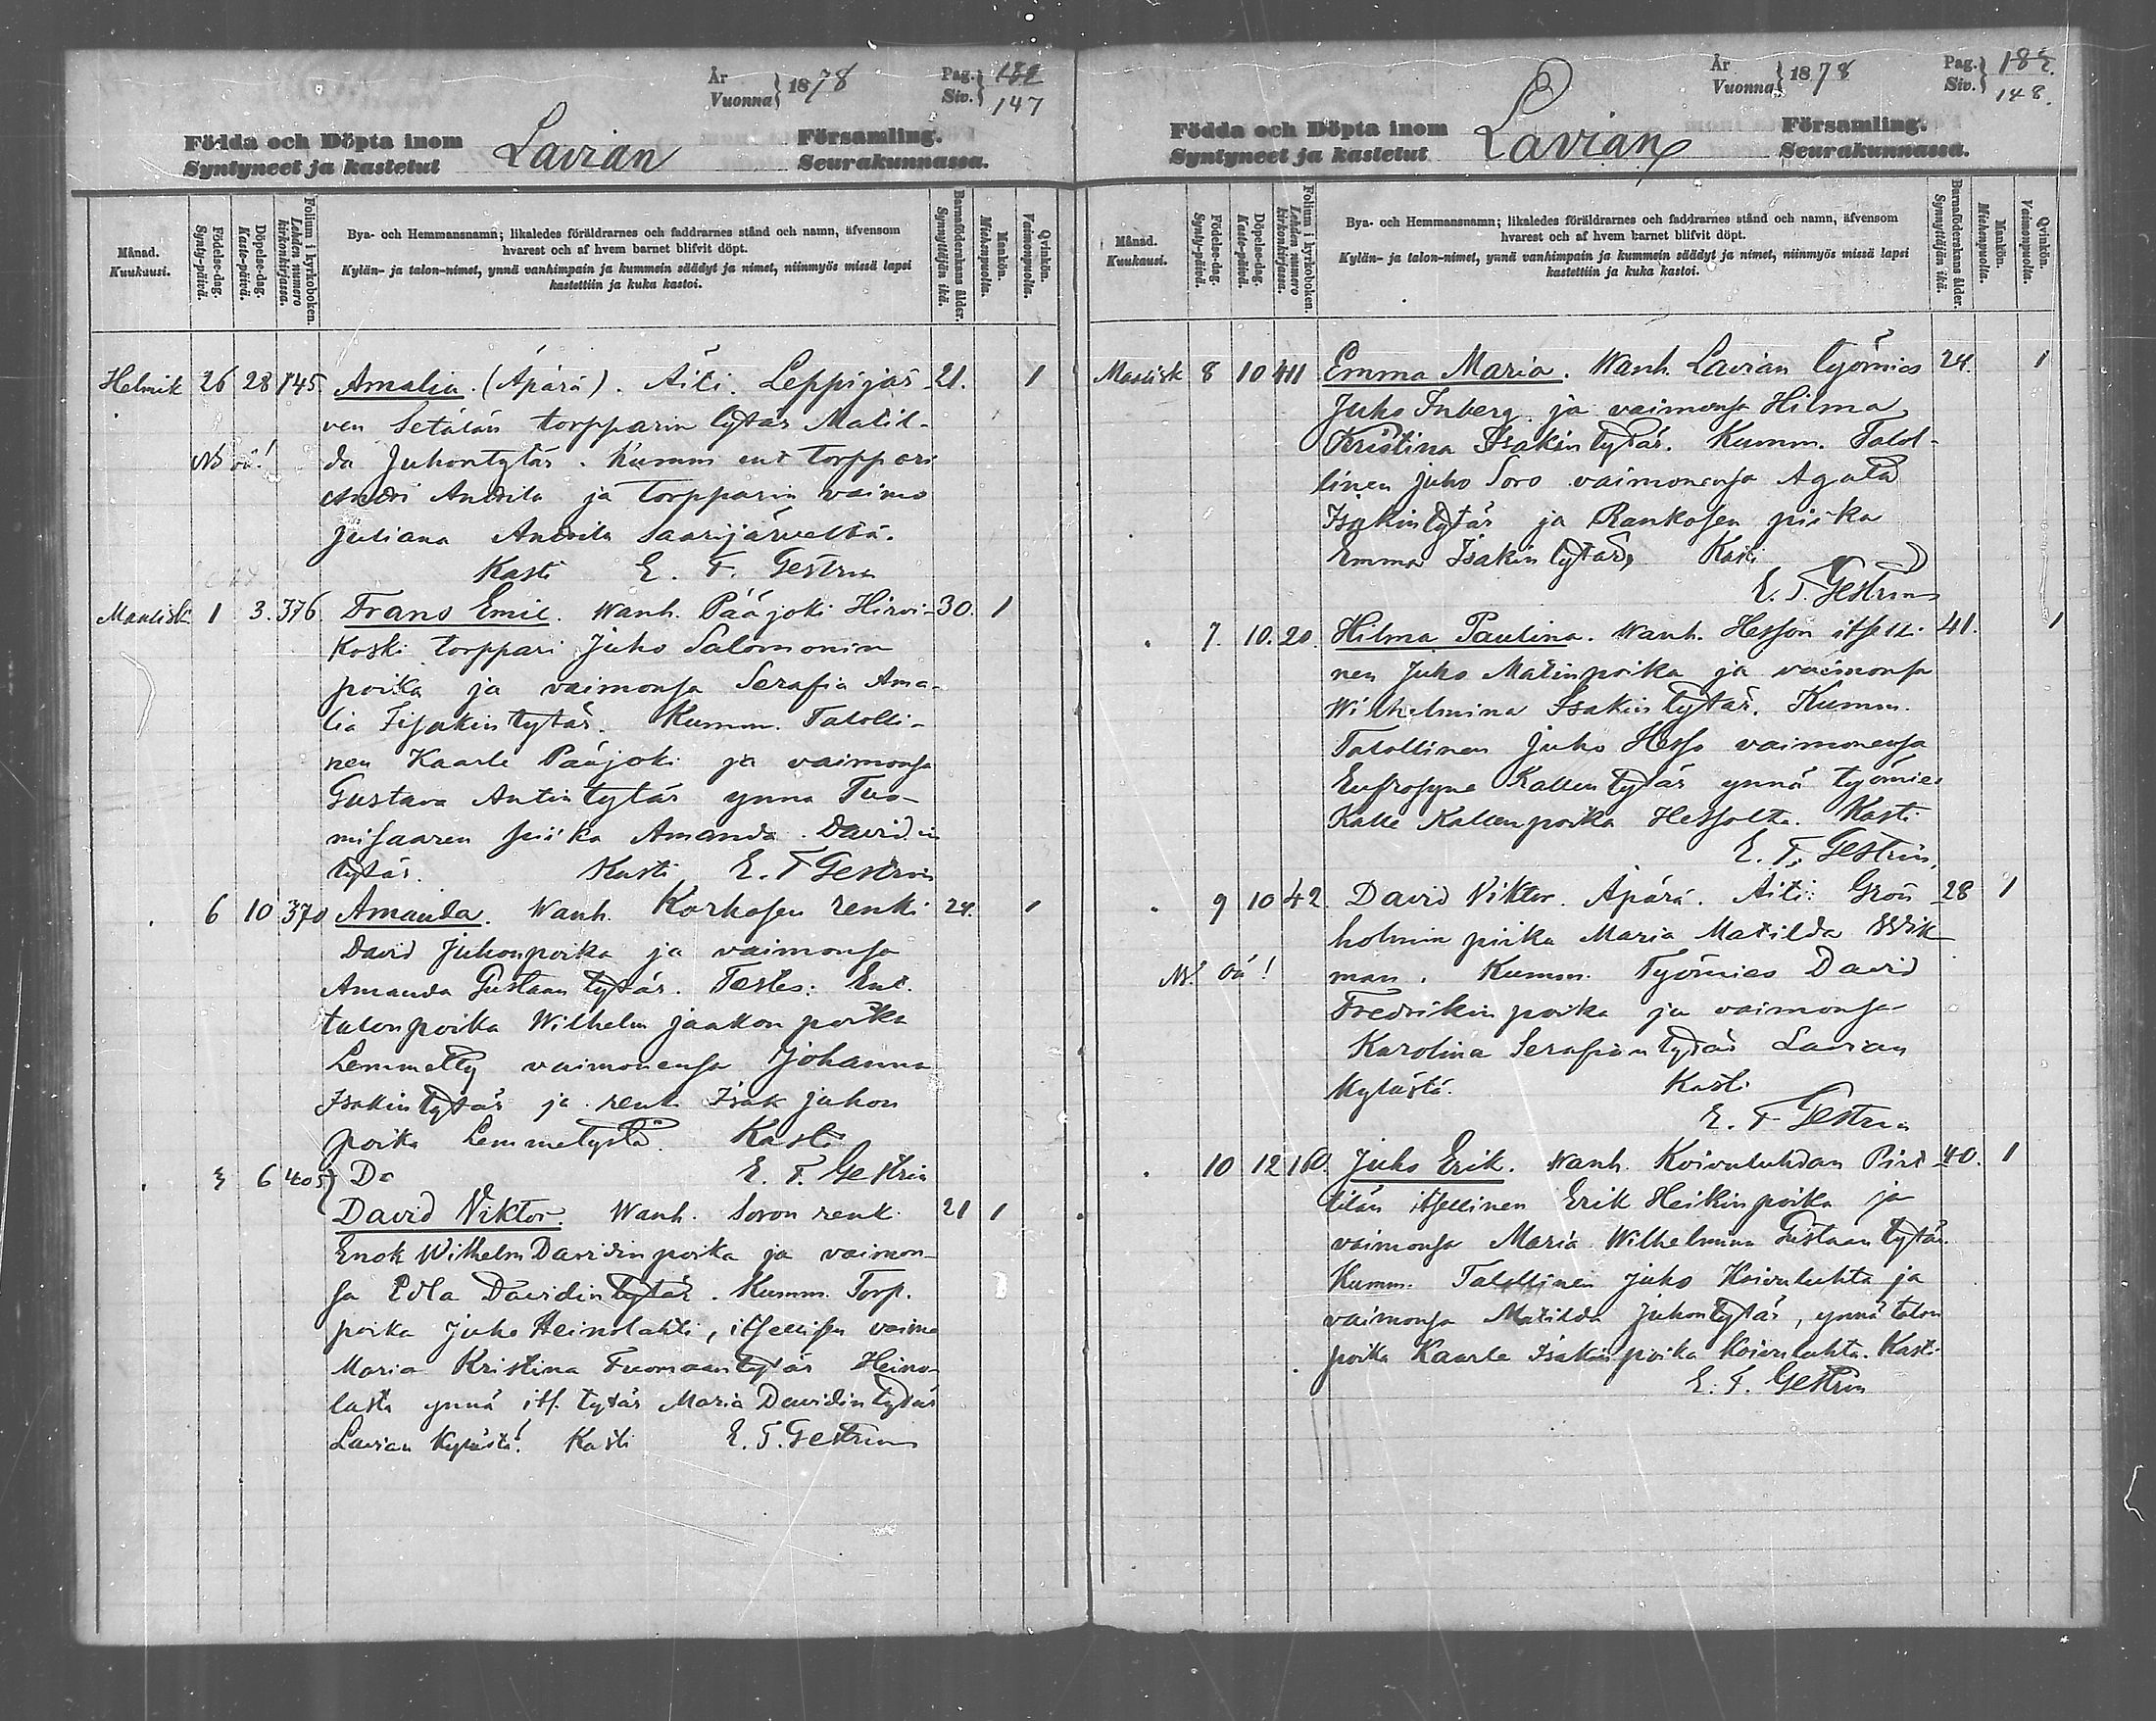 År
Vuonna } 1878
Pag.
Siv. } 182
147
Födda och Döpta inom
Syntyneet ja kastetut
Lavian
Församling.
Seurakunnassa.
Månad.
Kuukausi.
Födelse-dag.
Synty-päivä.
Döpelse-dag.
Kaste-päivä.
Folium i kyrkoboken.
Lehden numero kirkonkirjassa.
Bya- och Hemmansnamn; likaledes föräldrarnes och faddrarnes stånd och namn, äfvensom
hvarest och af hvem barnet blifvit döpt.
Kylän- ja talon-nimet, ynnä vanhimpain ja kummein säädyt ja nimet, niinmyös missä lapsi
kastettiin ja kuka kastoi.
Barnaföderskans ålder.
Synnyttäjän ikä.
Mankön.
Miehenpuolia.
Qvinkön.
Vaimonpuolia.
Helmik 26 28 145 Amalia (Äpärä). Äiti. Leppijär 21. 1
ven Setälän torpparin tytär Matil-
NB oä! da Juhontytär. Kumm ent torppari
Antti Anttila ja torpparin vaimo
Juliana Anttila Saarijärveltä.
Kasti E. F. Gestrin
Maalisk. 1 3. 376. Frans Emil. Wanh. Pääjoki Hirvi- 30. 1
Koski torppari Juho Salomonin
poika ja vaimonsa Serafia Ama-
lia Isakintytär. Kumm. Talolli-
nen Kaarle Pääjoki ja vaimonsa
Gustava Antintytär ynnä Tuo-
misaaren piika Amanda Davidin
tytär. Kasti E. F Gestrin
6 10 370 Amanda. Wanh. Korhosen renki 24. 1
David Juhonpoika ja vaimonsa
Amanda Gustaantytär. Testes: Ent.
talonpoika Wilhelm Jaakon poika
Lemmetty vaimonensa Johanna
Isakintytär ja renk. Isak Juhon
poika Lemmetystä. Kasti
3 6 405 Do E. F. Gestrin
David Viktor. Wanh. Soron renk. 21 1
Enok Wilhelm Davidinpoika ja vaimon-
sa Edla Davidintytär. Kumm. Torp.
poika Juho Heinolahti, itsellisen vaimo
Maria Kristina Tuomaantytär Heino-
lasta ynnä its. tytär Maria Davidintytär
Lavian Kylästä. Kasti E. F. Gestrin
År
Vuonna } 1878
Pag.
Siv. } 183.
148.
Födda och Döpta inom
Syntyneet ja kastetut
Lavian
Församling.
Seurakunnassa.
Månad.
Kuukausi.
Födelse-dag.
Synty-päivä.
Döpelse-dag.
Kaste-päivä.
Folium i kyrkoboken.
Lehden numero kirkonkirjassa.
Bya- och Hemmansnamn; likaledes föräldrarnes och faddrarnes stånd och namn, äfvensom
hvarest och af hvem barnet blifvit döpt.
Kylän- ja talon-nimet, ynnä vanhimpain ja kummein säädyt ja nimet, niinmyös missä lapsi
kastettiin ja kuka kastoi.
Barnaföderskans ålder.
Synnyttäjän ikä.
Mankön.
Miehenpuolia.
Qvinkön.
Vaimonpuolia.
Maalisk 8 10 411 Emma Maria. Wanh. Lavian työmies 24. 1
Juho Inberg ja vaimonsa Hilma
Kristina Isakintytär. Kumm. Talol-
linen Juho Soro vaimonensa Agata
Isakintytär ja Rankosen piika
Emma Isakintytär, Kasti
E. F. Gestrin
7. 10. 20. Hilma Paulina. Wanh. Hesson itselli- 41. 1
nen Juho Matinpoika ja vaimonsa
Wilhelmina Isakintytär. Kumm.
Talollinen Juho Hesso vaimonensa
Eufrosyne Kallentytär ynnä työmies
Kalle Kallenpoika Hessolta. Kasti
E. F. Gestrin.
9 10 42 David Viktor. Äpärä. Äiti: Grön 28 1
holmin piika Maria Matilda Wik-
NB. oä! man. Kumm. Työmies David
Fredrikin poika ja vaimonsa
Karolina Serafiantytär Lavian
Kylästä. Kasti
E. F Gestrin
10 12 160. Juho Erik. Wanh. Koivuluhdan Pirt- 40. 1
tilän itsellinen Erik Heikinpoika ja
vaimonsa Maria Wilhelmina Gustaantytär.
Kumm. Talollinen Juho Koivuluhta ja
vaimonsa Matilda Juhontytär, ynnä talon
poika Kaarle Isakinpoika Koivuluhta. Kasti
E. F. Gestrin